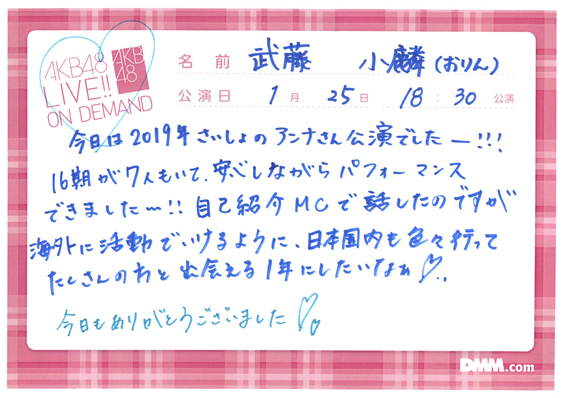 AKB48
LIVE!!
ON DEMAND
AKB
48
名前 武藤 小麟(おりん)
公演日 1月 25日 18:30 公演
今日は2019年さいしょのアンナさん公演でしたー!!!
16期が7人もいて、安心しながらパフォーマンス
できました〜!!自己紹介MCで話したのですが
海外に活動でいけるように、日本国内も色々行って
たくさんの方と出会える1年にしたいなぁ♡..
今日もありがとうございました♡♡
DMM.com